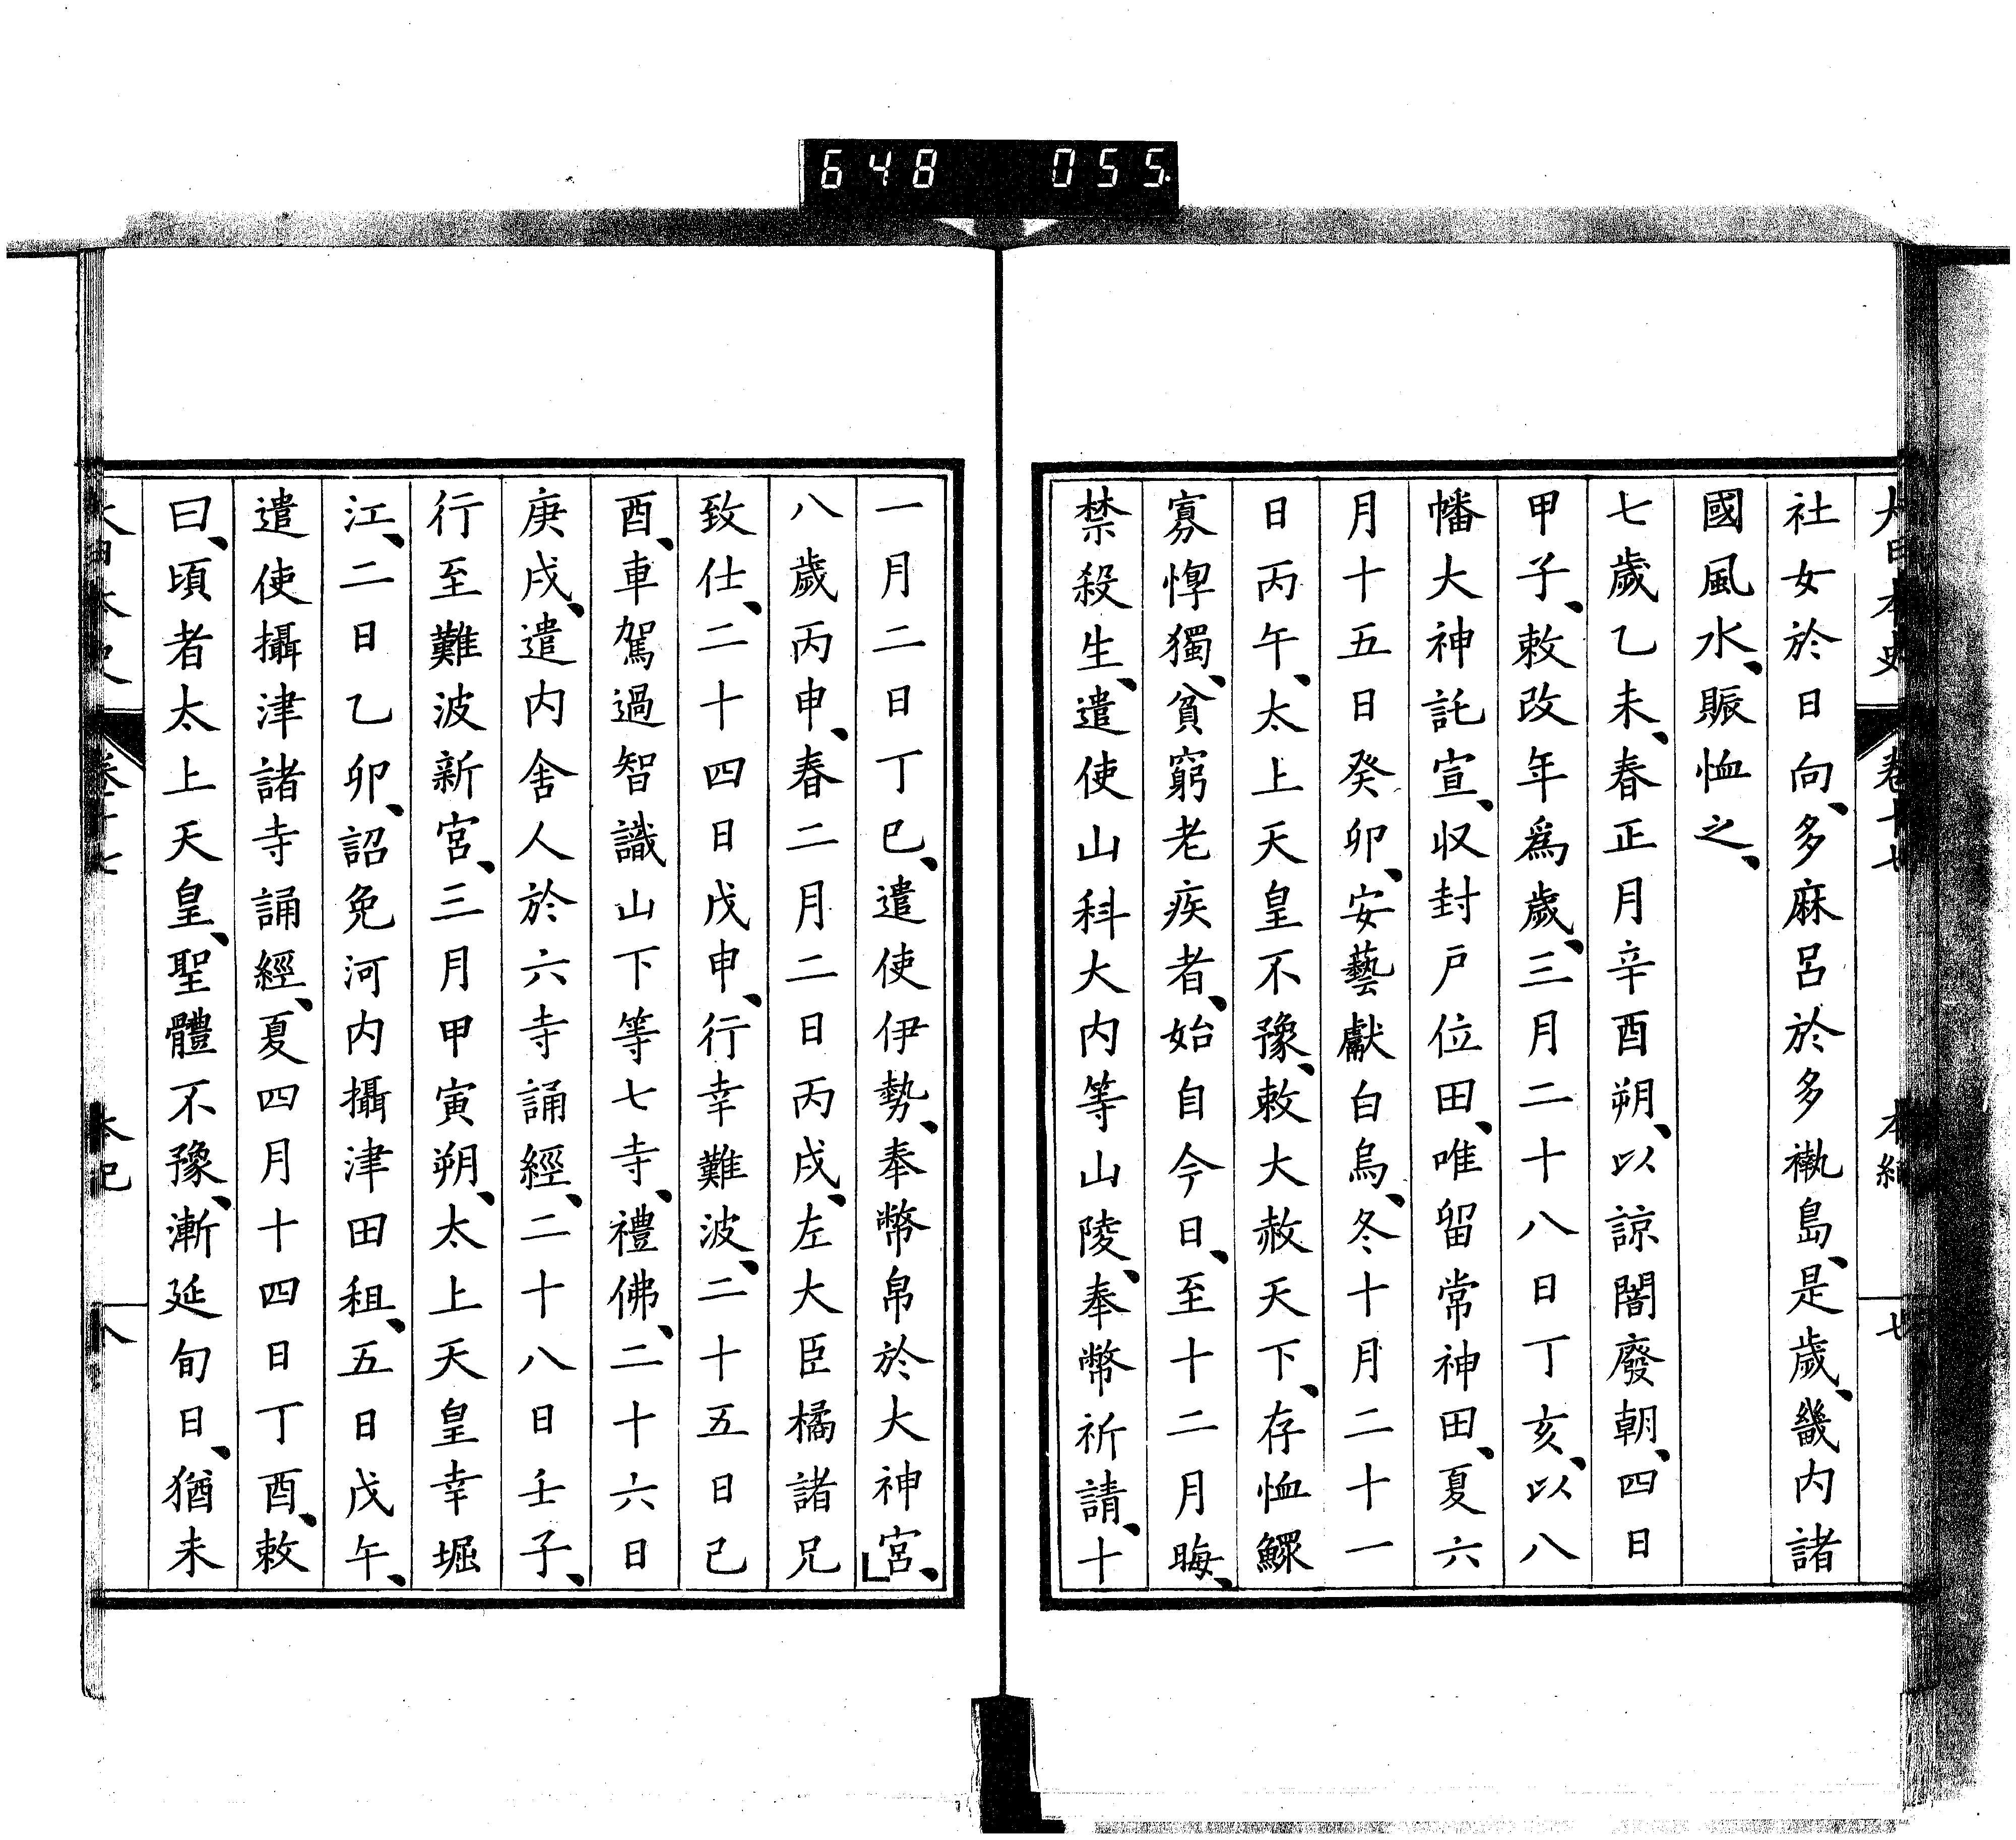 648 055
大日本史 卷十七 本紀 七
社女於日向、多麻呂於多褹島、是歲、畿內諸
國風水、賑恤之、
七歲乙未、春正月辛酉朔、以諒闇廢朝、四日
甲子、敕改年爲歲、三月二十八日丁亥、以八
幡大神託宣、收封戶位田、唯留常神田、夏六
月十五日癸卯、安藝獻白烏、冬十月二十一
日丙午、太上天皇不豫、敕大赦天下、存恤鰥
寡惸獨、貧窮老疾者、始自今日、至十二月晦、
禁殺生、遣使山科大內等山陵、奉幣祈請、十
一月二日丁巳、遣使伊勢、奉幣帛於大神宮、
八歲丙申、春二月二日丙戌、左大臣橘諸兄
致仕、二十四日戊申、行幸難波、二十五日己
酉、車駕過智識山下等七寺、禮佛、二十六日
庚戌、遣內舍人於六寺誦經、二十八日壬子、
行至難波新宮、三月甲寅朔、太上天皇幸堀
江、二日乙卯、詔免河內攝津田租、五日戊午、
遣使攝津諸寺誦經、夏四月十四日丁酉、敕
曰、頃者太上天皇、聖體不豫、漸延旬日、猶未